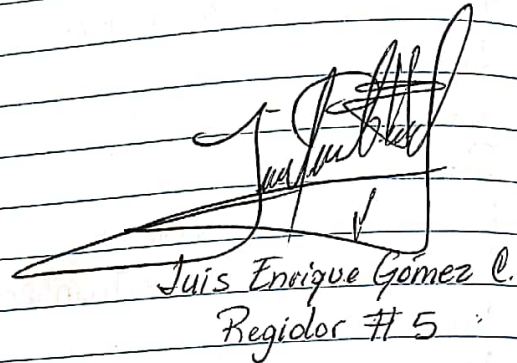 Luis Enrique Gómez C.
Regidor # 5